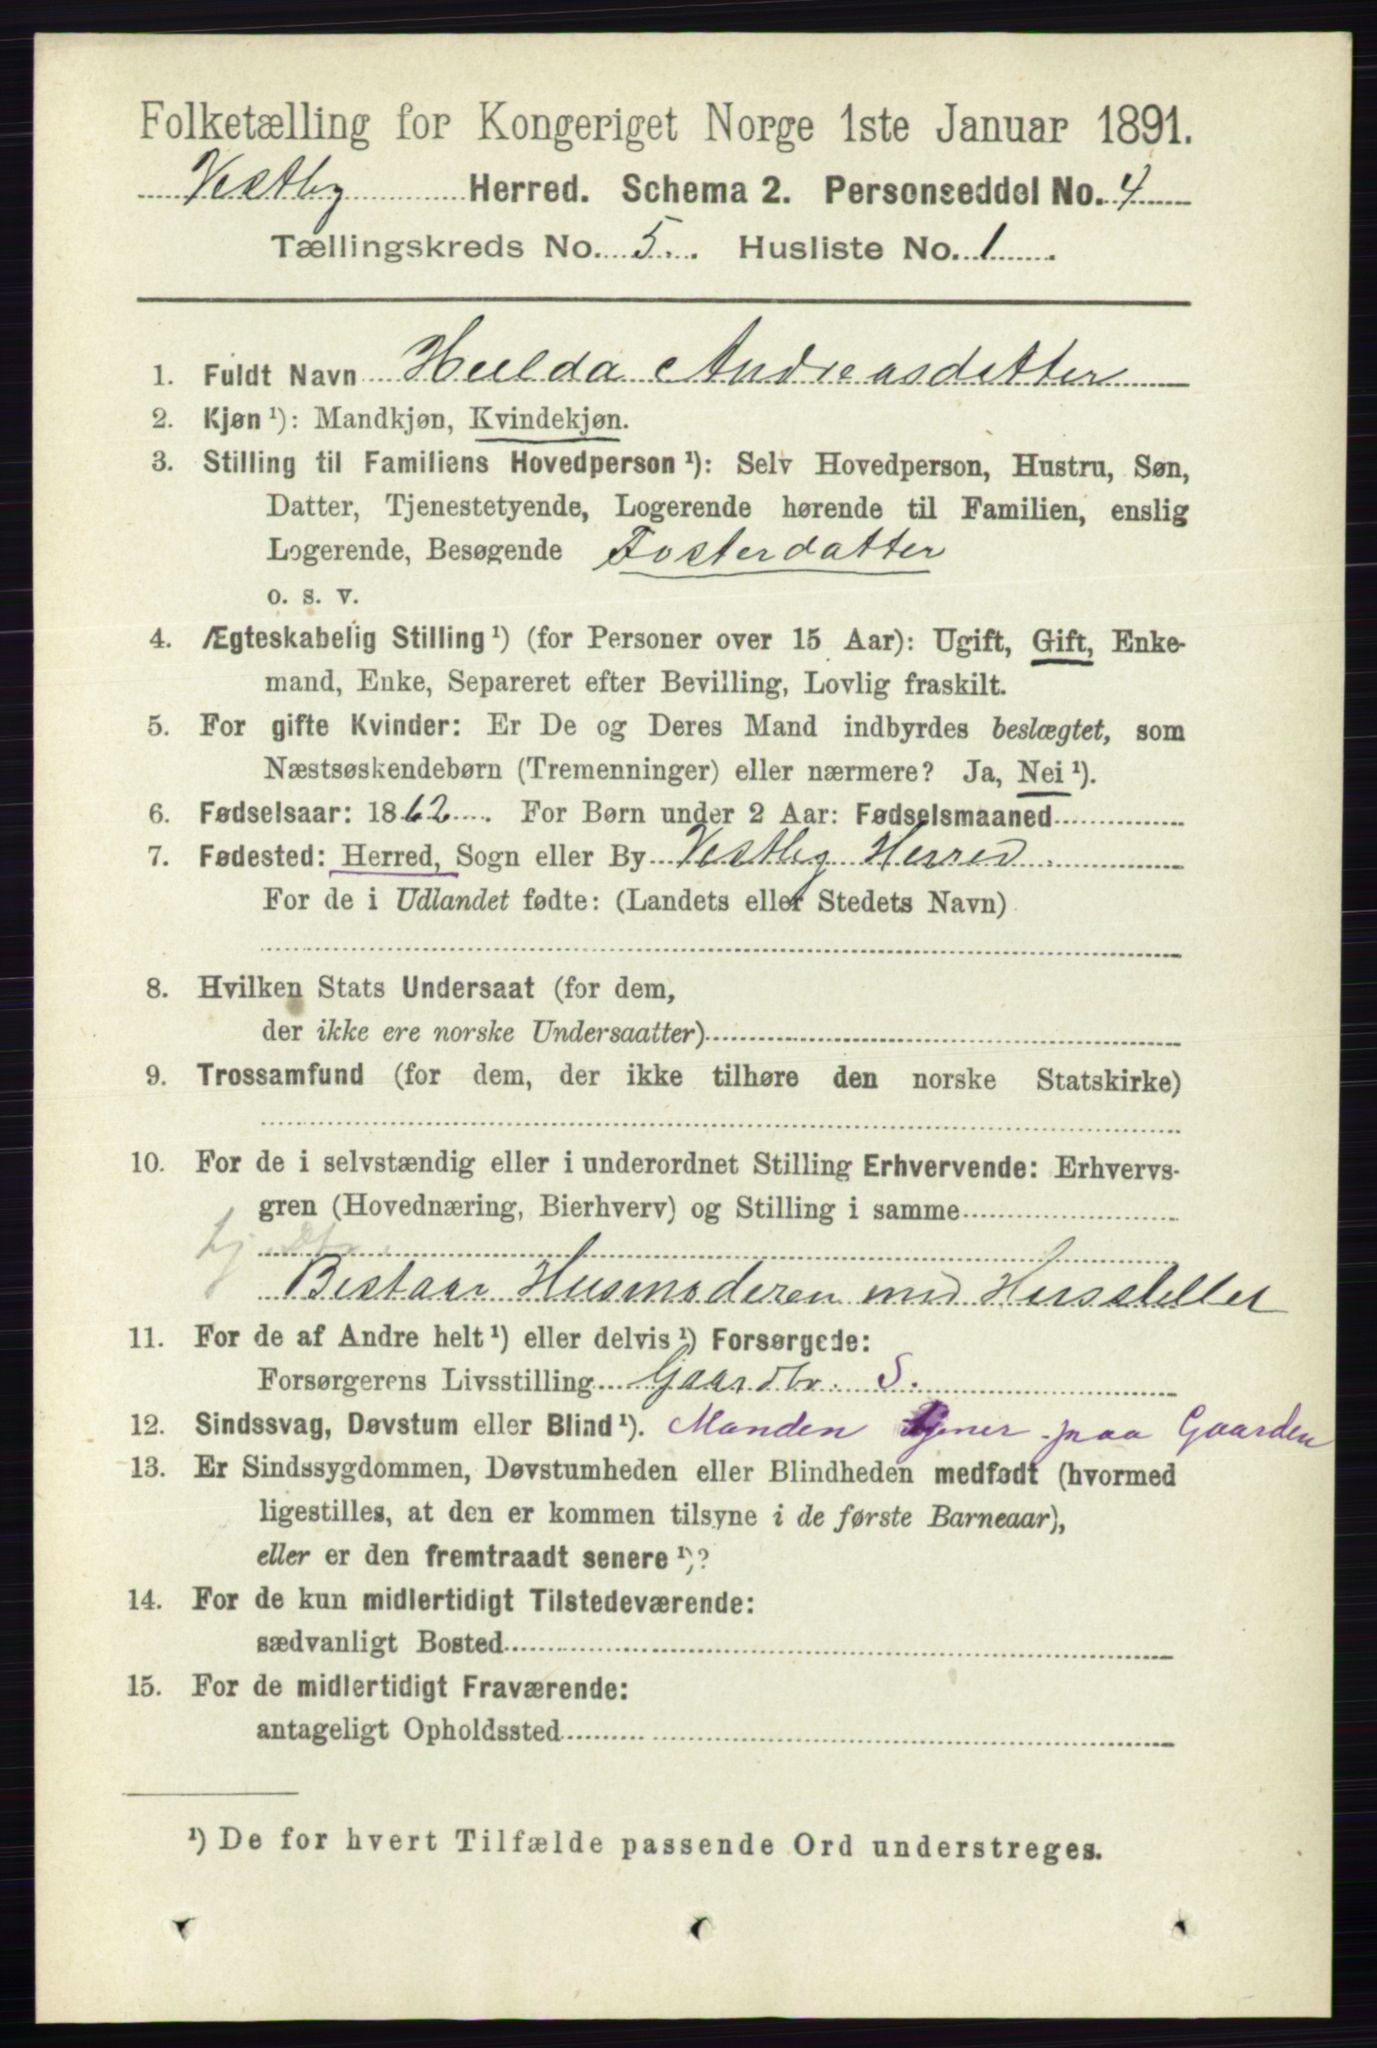 Folketælling for Kongeriget Norge 1ste Januar 1891.
Vestby Herred. Schema 2. Personseddel No. 4
Tællingskreds No. 5. Husliste No. 1.
1. Fuldt Navn Hulda Andreasdatter
2. Kjøn¹): Mandkjøn, Kvindekjøn.
3. Stilling til Familiens Hovedperson¹): Selv Hovedperson, Hustru, Søn,
Datter, Tjenestetyende, Logerende hørende til Familien, enslig
Logerende, Besøgende Fosterdatter
o. s. v.
4. Ægteskabelig Stilling¹) (for Personer over 15 Aar): Ugift, Gift, Enke-
mand, Enke, Separeret efter Bevilling, Lovlig fraskilt.
5. For gifte Kvinder: Er De og Deres Mand indbyrdes beslægtet, som
Næstsøskendebørn (Tremenninger) eller nærmere? Ja, Nei¹).
6. Fødselsaar: 1862. For Børn under 2 Aar: Fødselsmaaned
7. Fødested: Herred, Sogn eller By Vestby Herred.
For de i Udlandet fødte: (Landets eller Stedets Navn)
8. Hvilken Stats Undersaat (for dem,
der ikke ere norske Undersaatter)
9. Trossamfund (for dem, der ikke tilhøre den norske Statskirke)
10. For de i selvstændig eller i underordnet Stilling Erhvervende: Erhvervs-
gren (Hovednæring, Bierhverv) og Stilling i samme
Bestaar Husmoderen med Husstellet
11. For de af Andre helt¹) eller delvis¹) Forsørgede:
Forsørgerens Livsstilling Gaardbr. S.
12. Sindssvag, Døvstum eller Blind¹). Manden tjener paa Gaarden
13. Er Sindssygdommen, Døvstumheden eller Blindheden medfødt (hvormed
ligestilles, at den er kommen tilsyne i de første Barneaar),
eller er den fremtraadt senere¹)?
14. For de kun midlertidigt Tilstedeværende:
sædvanligt Bosted
15. For de midlertidigt Fraværende:
antageligt Opholdssted
¹) De for hvert Tilfælde passende Ord understreges.